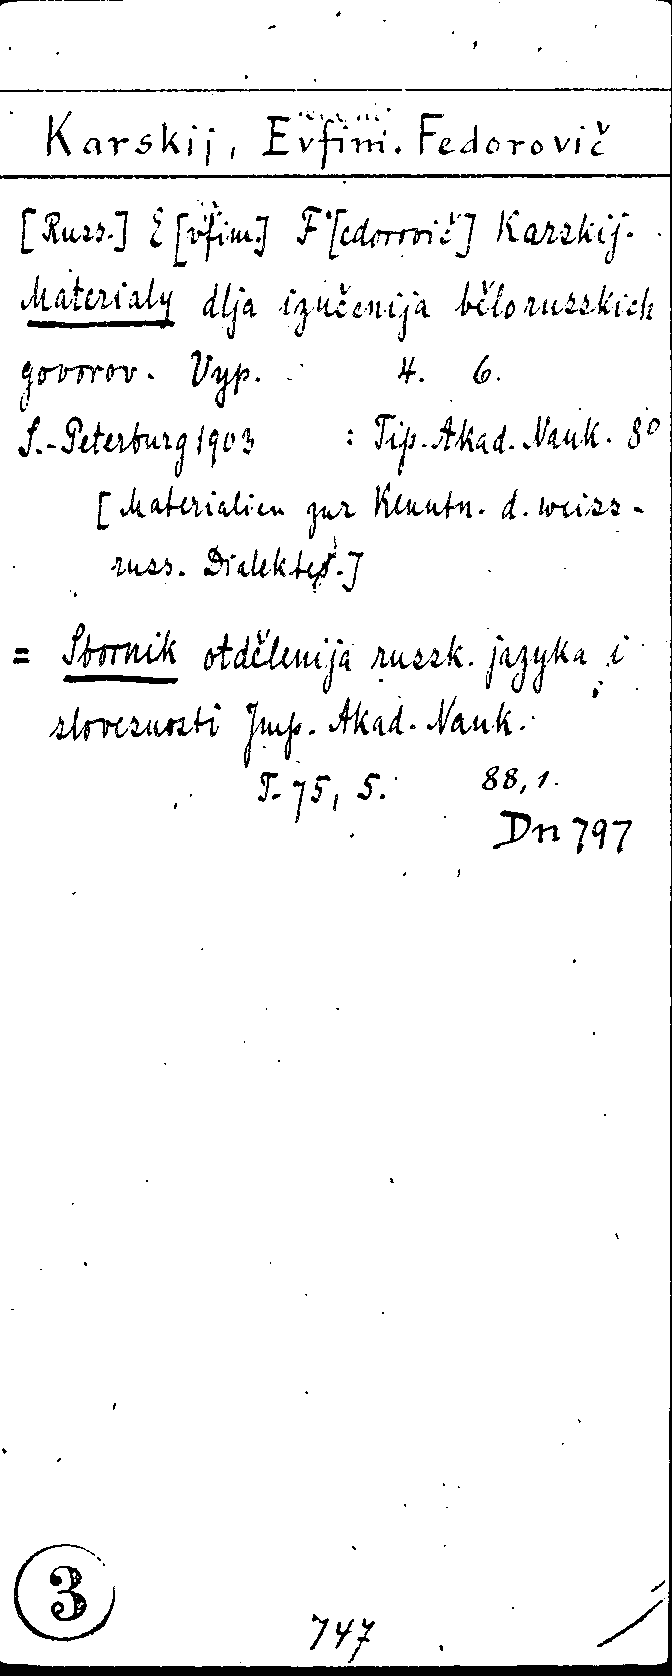 Karskij, Evfim. Fedorovič
[Russ.] E[vfim.] F[edorovič] Karskij.
Materialy dlja izučenija bělorusskich
govorov. Vyp. 4. 6.
S.-Peterburg 1903 : Tip. Akad. Nauk. 8°
[Materialien zur Kenntn. d. weiss-
russ. Dialektes.]
= Sbornik otdělenija russk. jazyka i
slovesnosti Imp. Akad. Nauk.
T. 75, 5. 88, 1.
Dn 797
3
747